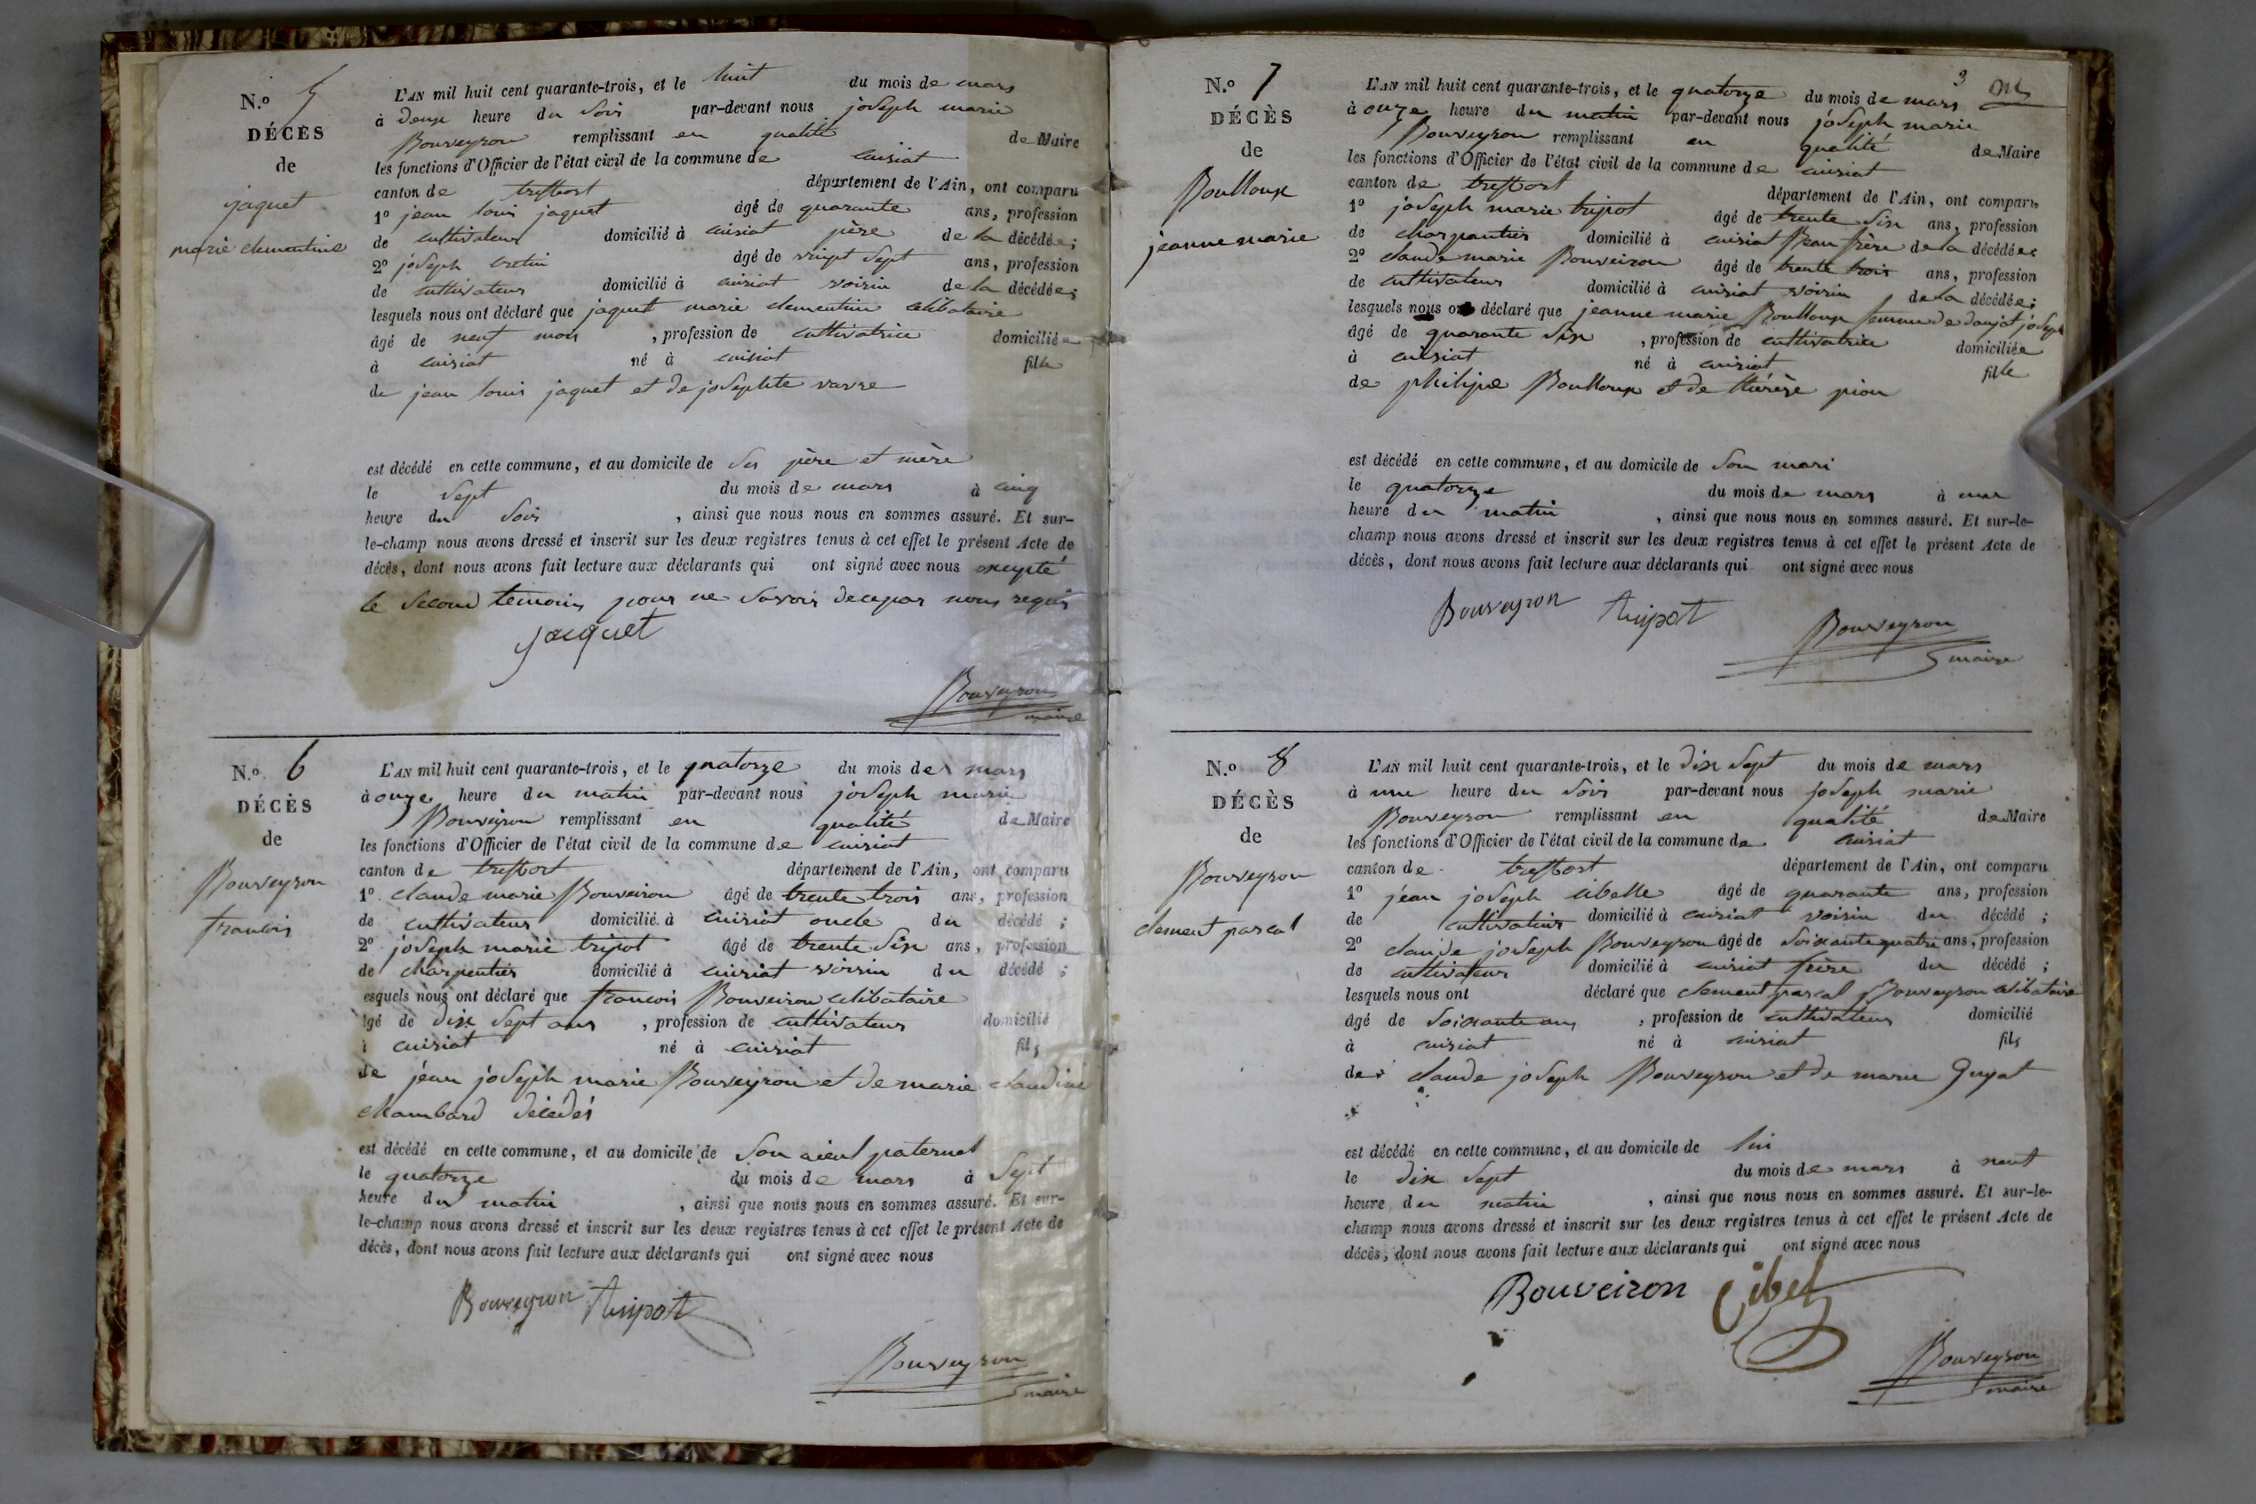 N.o 5
DÉCÈS
de
jaquet
marie clementine
L'AN mil huit cent quarante-trois, et le huit du mois de mars
à deux heure du soir par-devant nous joseph marie
Bouveyron remplissant en qualité de Maire
les fonctions d'Officier de l'état civil de la commune de cuisiat
canton de treffort département de l'Ain, ont comparu
1o jean louis jaquet âgé de quarante ans, profession
de cultivateur domicilié à cuisiat père de la décédée;
2o joseph âgé de vingt sept ans, profession
de cultivateur domicilié à cuisiat voisin de la décédée;
lesquels nous ont déclaré que jaquet marie clementine celibataire
âgé de neuf mois, profession de cultivatrice domiciliée
à cuisiat né à cuisiat fille
de jean louis jaquet et de josephte varre
est décédé en cette commune, et au domicile de ses père et mère
le sept du mois de mars à cinq
heure du soir, ainsi que nous nous en sommes assuré. Et sur-
le-champ nous avons dressé et inscrit sur les deux registres tenus à cet effet le présent Acte de
décès, dont nous avons fait lecture aux déclarants qui ont signé avec nous excepté
le second temoin pour ne savoir de ce par nous requis
jaquet
Bouveyron
maire
N.o 6
DÉCÈS
de
Bouveyron
francois
L'AN mil huit cent quarante-trois, et le quatorze du mois de mars
à onze heure du matin par-devant nous joseph marie
Bouveyron remplissant en qualité de Maire
les fonctions d'Officier de l'état civil de la commune de cuisiat
canton de treffort département de l'Ain, ont comparu
1o claude marie Bouveiron âgé de trente trois ans, profession
de cultivateur domicilié à cuisiat oncle du décédé;
2o joseph marie tripot âgé de trente six ans, profession
de charpentier domicilié à cuisiat voisin du décédé;
esquels nous ont déclaré que francois Bouveiron celibataire
âgé de dix sept ans, profession de cultivateur domicilié
à cuisiat né à cuisiat fils
de jean joseph marie Bouveyron et de marie claudine
chambard décédés
est décédé en cette commune, et au domicile de son aieul paternel
le quatorze du mois de mars à sept
heure du matin, ainsi que nous nous en sommes assuré. Et sur-
le-champ nous avons dressé et inscrit sur les deux registres tenus à cet effet le présent Acte de
décès, dont nous avons fait lecture aux déclarants qui ont signé avec nous
Bouveyron tripot
Bouveyron
maire
3
N.o 7
DÉCÈS
de
Boulloux
jeanne marie
L'AN mil huit cent quarante-trois, et le quatorze du mois de mars
à onze heure du matin par-devant nous joseph marie
Bouveyron remplissant en qualité de Maire
les fonctions d'Officier de l'état civil de la commune de cuisiat
canton de treffort département de l'Ain, ont comparu
1o joseph marie tripot âgé de trente six ans, profession
de charpentier domicilié à cuisiat Beau frère de la décédée
2o claude marie Bouveiron âgé de trente trois ans, profession
de cultivateur domicilié à cuisiat voisin de la décédée;
lesquels nous ont déclaré que jeanne marie Boulloux femme de donjat joseph
âgé de quarante six, profession de cultivatrice domiciliée
à cuisiat né à cuisiat fille
de philipe Boulloux et de thérèse pion
est décédé en cette commune, et au domicile de son mari
le quatorze du mois de mars à une
heure du matin, ainsi que nous nous en sommes assuré. Et sur-le-
champ nous avons dressé et inscrit sur les deux registres tenus à cet effet le présent Acte de
décès, dont nous avons fait lecture aux déclarants qui ont signé avec nous
Bouveyron tripot
Bouveyron
maire
N.o 8
DÉCÈS
de
Bouveyron
clement pascal
L'AN mil huit cent quarante-trois, et le dix sept du mois de mars
à une heure du soir par-devant nous joseph marie
Bouveyron remplissant en qualité de Maire
les fonctions d'Officier de l'état civil de la commune de cuisiat
canton de treffort département de l'Ain, ont comparu
1o jean joseph cibelle âgé de quarante ans, profession
de cultivateur domicilié à cuisiat voisin du décédé;
2o claude joseph Bouveyron âgé de soixante quatre ans, profession
de cultivateur domicilié à cuisiat frère du décédé;
lesquels nous ont déclaré que clement pascal Bouveyron celibataire
âgé de soixante ans, profession de cultivateur domicilié
à cuisiat né à cuisiat fils
de claude joseph Bouveyron et de marie Guyat
est décédé en cette commune, et au domicile de lui
le dix sept du mois de mars à neuf
heure du matin, ainsi que nous nous en sommes assuré. Et sur-le-
champ nous avons dressé et inscrit sur les deux registres tenus à cet effet le présent Acte de
décès, dont nous avons fait lecture aux déclarants qui ont signé avec nous
Bouveiron Cibel
Bouveyron
maire